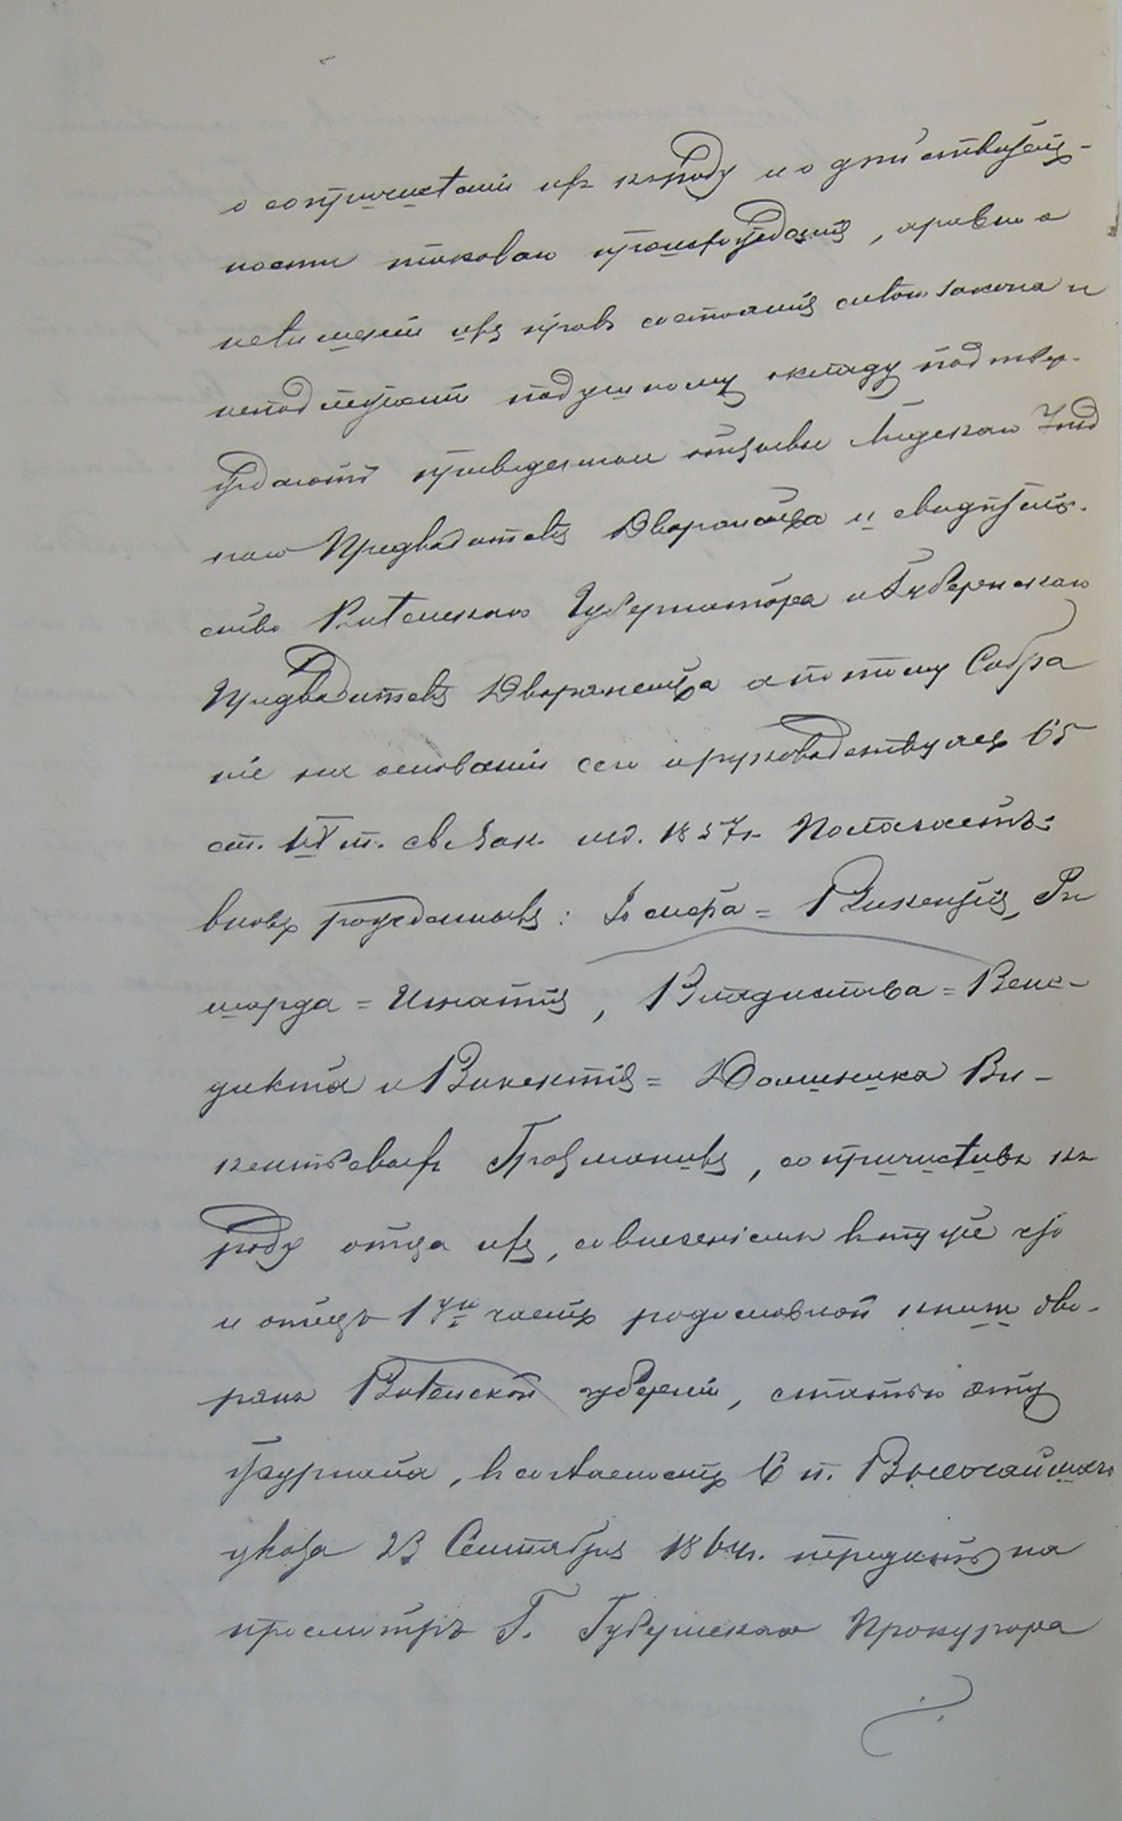 о сопричисленіи ихъ къ роду и о дѣйствитель-
ности таковаго происхожденія, а равно о
нелишеніи ихъ правъ состоянія силою закона и
неподлежаніи подушному окладу подтвер-
ждаютъ приведенные отзывы Лидскаго Уѣзд
наго Предводителя Дворянства и свидѣтель-
ство Виленскаго Губернатора и Губернскаго
Предводителя Дворянства а потому Собра
ніе на основаніи сего и руководствуясь 65
ст. IX т. св. Зак. изд. 1857 г. Полагаетъ:
вновь рожденныхъ: Іосифа = Викентія, Ри
шарда = Игнатія, Владислава = Бене-
дикта и Викентія = Доминика Ви-
кентьевыхъ, сопричисливъ къ
роду отца ихъ, со внесеніемъ въ ту же
и отецъ 1ую часть родословной книги дво-
рянъ Виленской губерніи, статью эту
журнала, въ 6 п. Высочайшаго
указа 23 Сентября 1864 г. передать на
просмотръ Г. Губернскаго Прокурора